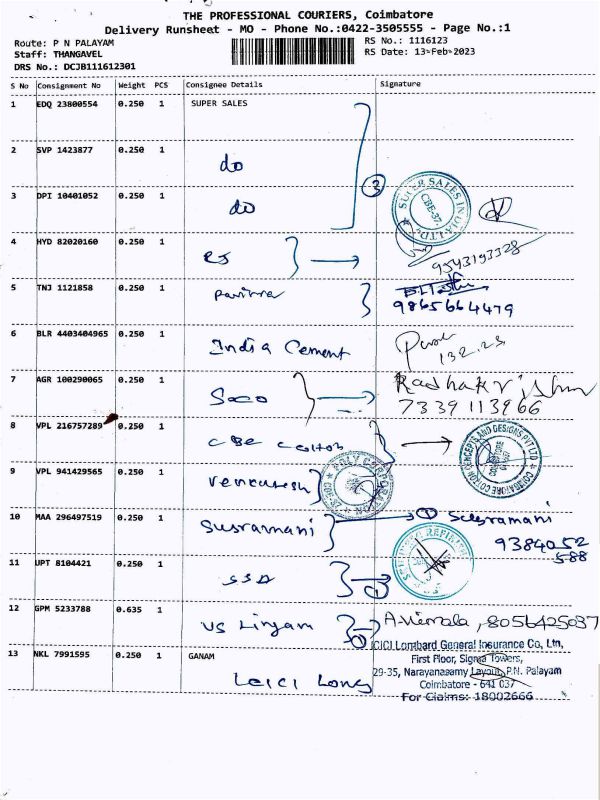 THE PROFESSIONAL COURIERS, Coimbatore
Delivery Runsheet - MO - Phone No.:0422-3505555 - Page No.:1
Route: P N PALAYAM
Staff: THANGAVEL
DRS No.: DCJB111612301
RS No.: 1116123
RS Date: 13-Feb-2023
S No Consignment No Weight PCS Consignee Details Signature
1 EDQ 23800554 0.250 1 SUPER SALES
2 SVP 1423877 0.250 1 do
3 DPI 10401052 0.250 1 do
3
SUPER SALES INDIA LTD.
CBE-37.
4 HYD 82020160 0.250 1 RJ
9543193328
5 TNJ 1121858 0.250 1 Pavithra
9865664479
6 BLR 4403404965 0.250 1 India Cement
13.2.23
7 AGR 100290065 0.250 1 Soco
Radhakrishnan
7339113966
8 VPL 216757289 0.250 1 CBE Cotton
COIMBATORE COTTON CONCEPTS AND DESIGNS PVT LTD
9 VPL 941429565 0.250 1 Venkatesh
10 MAA 296497519 0.250 1 Susramani
1 Susramani
9384052
588
11 UPT 8104421 0.250 1 SSA
12 GPM 5233788 0.635 1 VS Lingam
A.Viemala, 8056425037
13 NKL 7991595 0.250 1 GANAM
LCICI Long
ICICI Lombard General Insurance Co, Ltn,
First Floor, Sigma Towers,
29-35, Narayanasamy Layout, P.N. Palayam
Coimbatore - 641 037
For Claims: 18002666